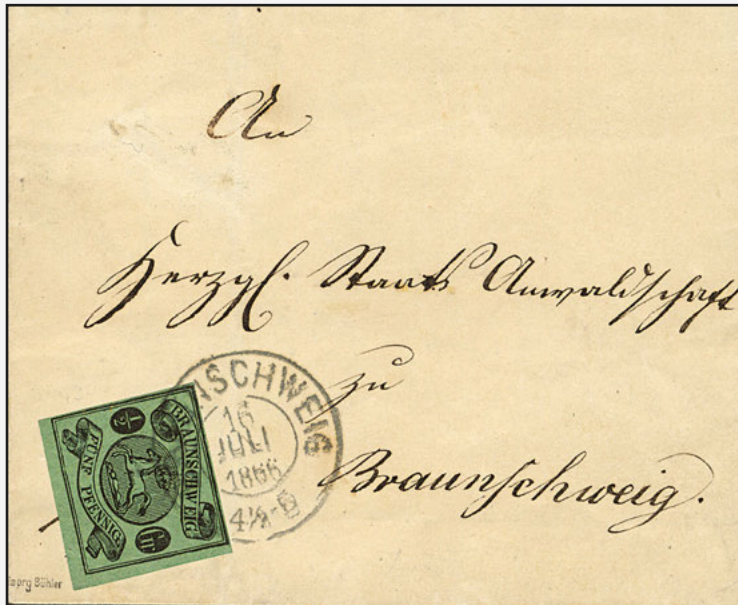 An
Herzgl. Staats Anwaldschaft
zu
Braunschweig.
NSCHWEIG
16
JULI
1866
4½-5
½
BRAUNSCHWEIG
FÜNF PFENNIG
Bühler